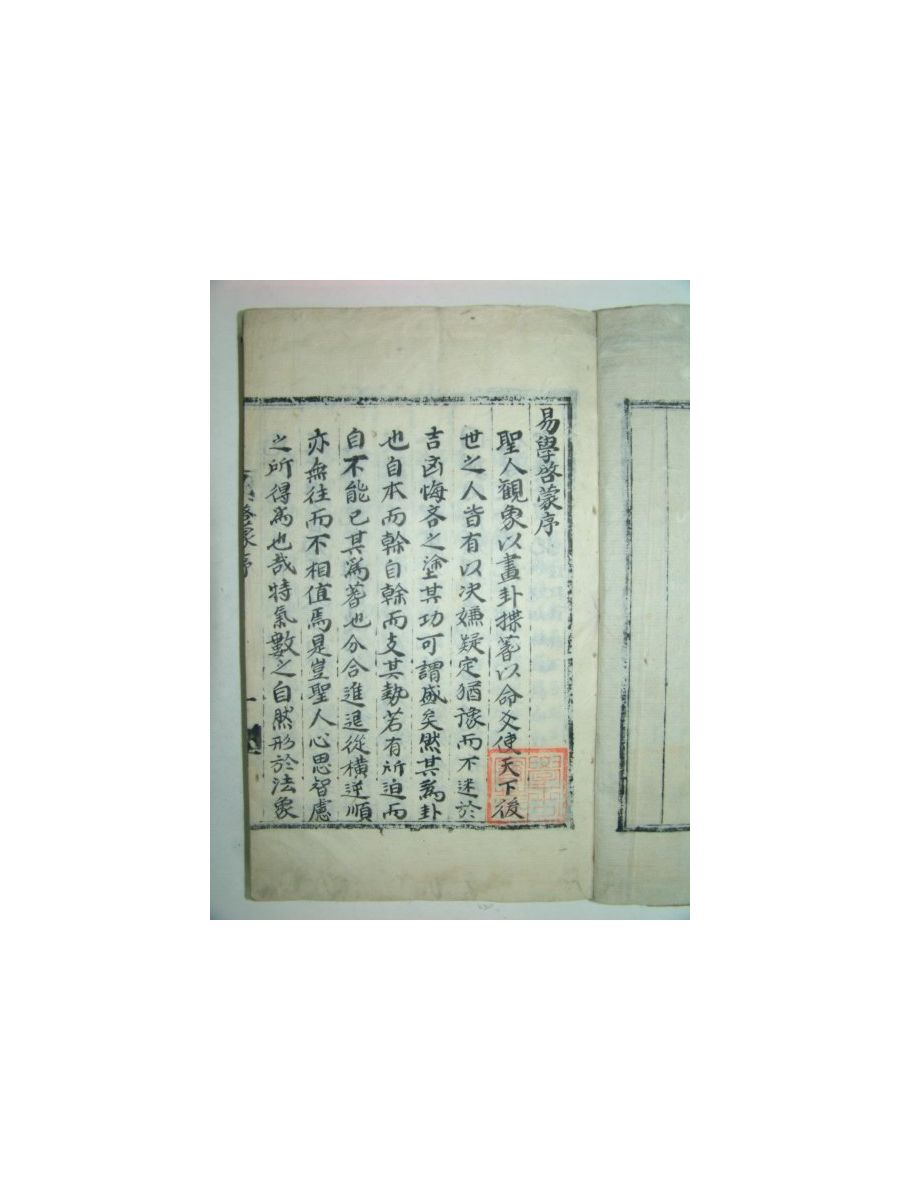 易學啓蒙序
聖人觀象以畫卦揲蓍以命爻使天下後
世之人皆有以决嫌疑定猶豫而不迷於
吉凶悔吝之塗其功可謂盛矣然其爲卦
也自本而幹自幹而支其勢若有所迫而
自不能已其爲蓍也分合進退從橫逆順
亦無往而不相值焉是豈聖人心思智慮
之所得爲也哉特氣數之自然形於法象
蒙序
一